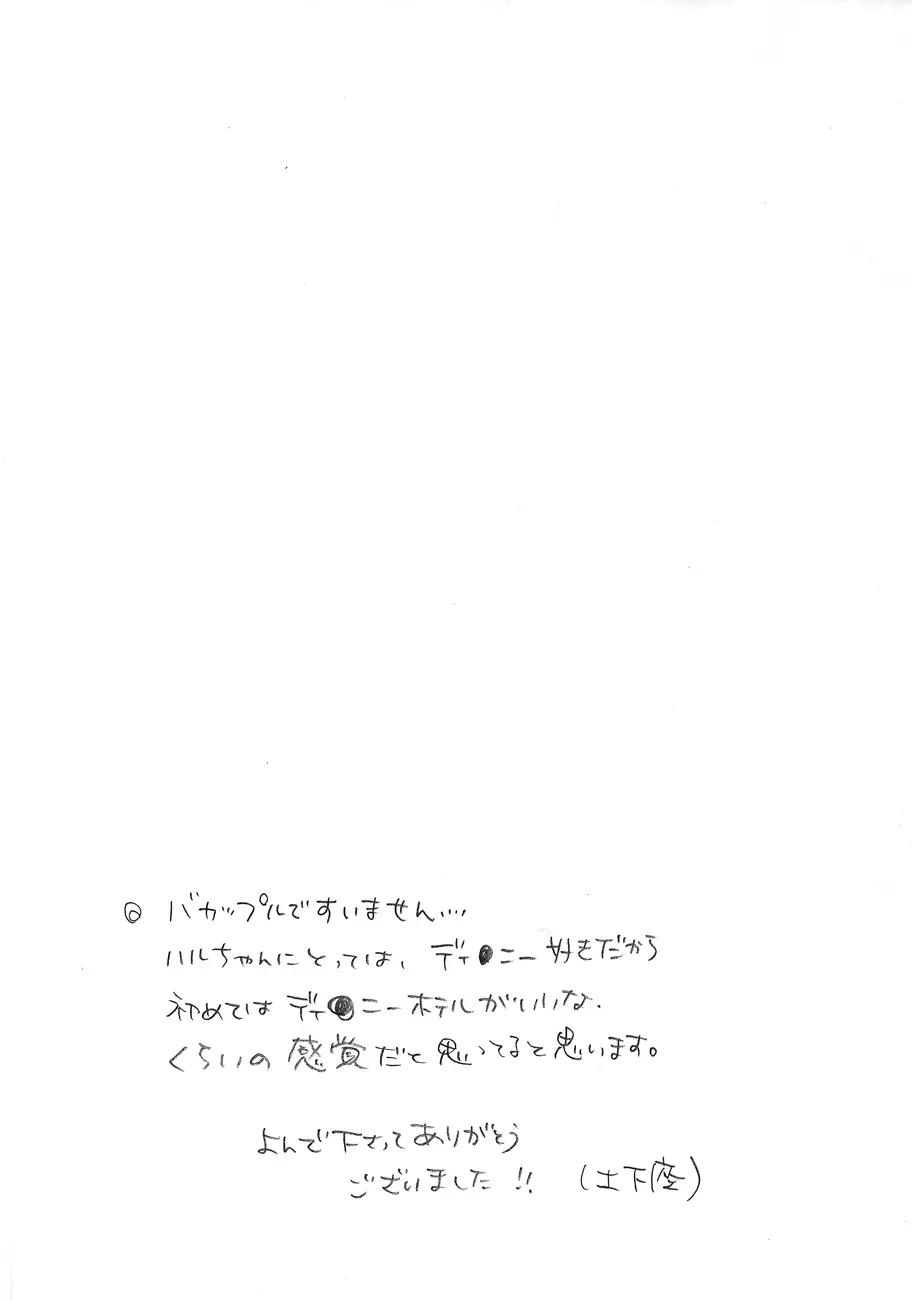 ◎ バカップルですいません…
ハルちゃんにとっては、ディ●ニー好きだから
初めてはディ●ニーホテルがいいな.
くらいの感覚だと思ってると思います。
よんで下さってありがとう
ございました!! (土下座)